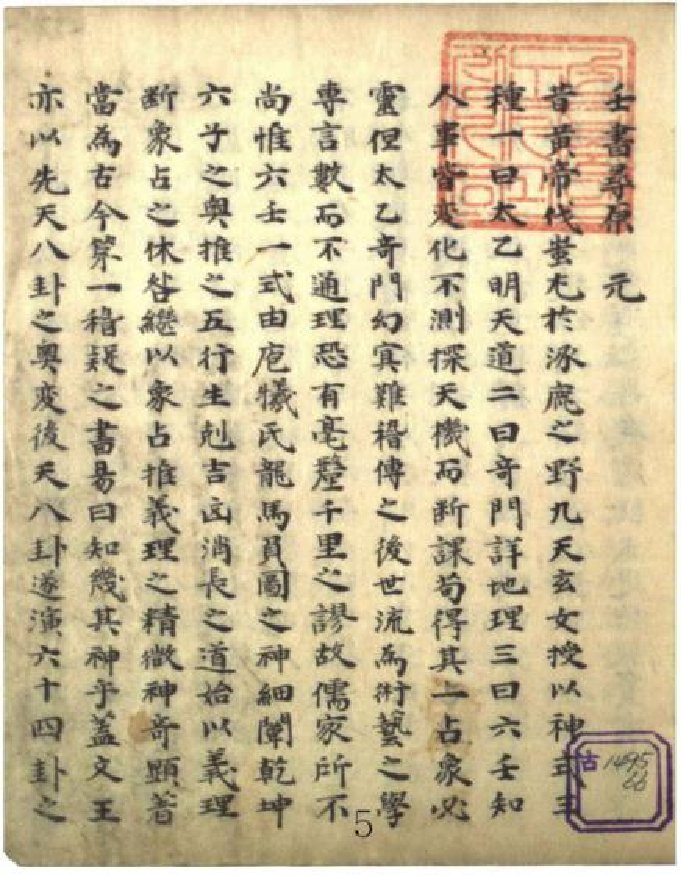 壬書尋原 元
昔黃帝伐蚩尤於涿鹿之野九天玄女授以神式三
種一曰太乙明天道二曰奇門詳地理三曰六壬知
人事皆変化不測探天機而断課苟得其一占象必
靈但太乙奇門幻寘難稽傳之後世流為術藝之學
專言數而不通理恐有毫釐千里之謬故儒家所不
尚惟六壬一式由庖犧氏龍馬負圖之神細闡乾坤
六子之奥推之五行生剋吉凶消長之道始以義理
断象占之休咎繼以象占推義理之精微神奇顯著
當為古今第一稽疑之書易曰知幾其神乎蓋文王
亦以先天八卦之奥変後天八卦遂演六十四卦之
古 1495
66
5